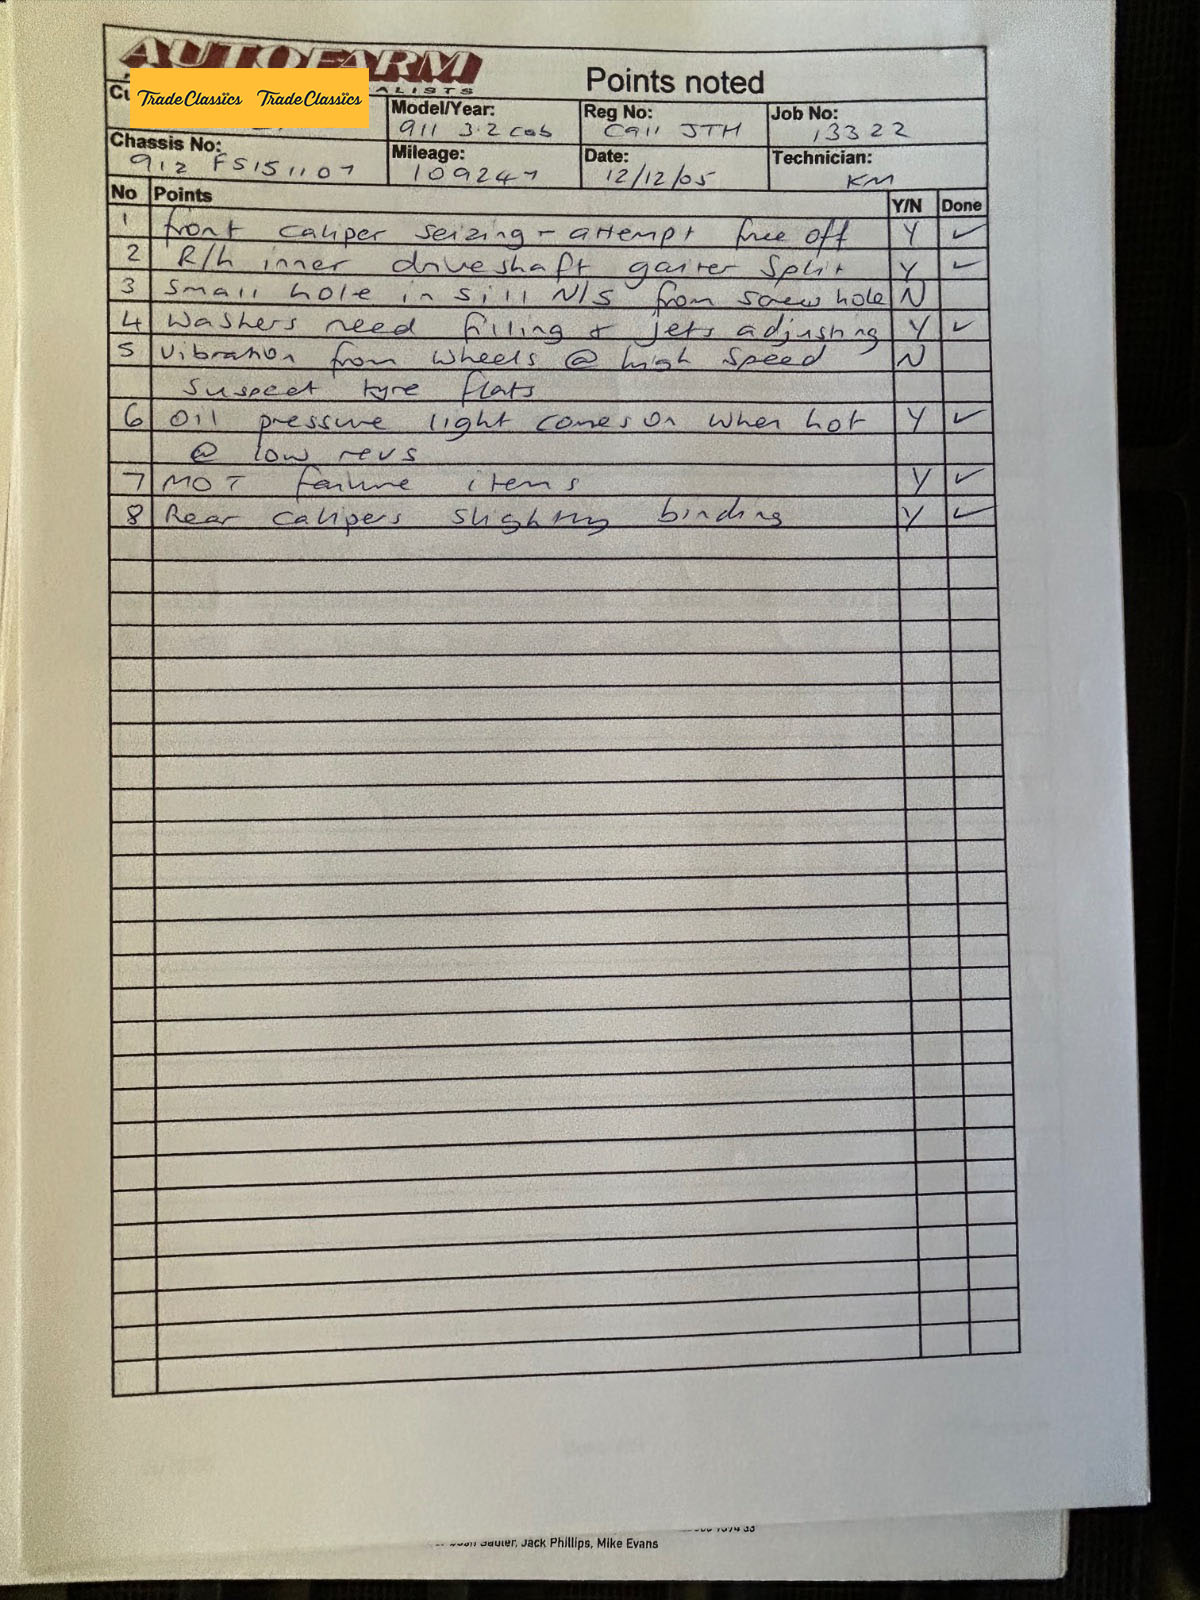 AUTOFARM
ALISTS
Points noted
Cu
TradeClassics TradeClassics
Model/Year:
911 3.2 Cab
Reg No:
C911 JTH
Job No:
13322
Chassis No:
912 FS151107
Mileage:
109247
Date:
12/12/05
Technician:
KM
No Points Y/N Done
1 front caliper seizing - attempt free off Y ✓
2 R/h inner driveshaft gaiter split Y ✓
3 Small hole in sill N/S from screw hole N
4 Washers need filling & jets adjusting Y ✓
5 Vibration from wheels @ high speed N
Suspect tyre flats
6 Oil pressure light comes on when hot Y ✓
@ low revs
7 MOT failure items Y ✓
8 Rear calipers slightly binding Y ✓
Jack Phillips, Mike Evans